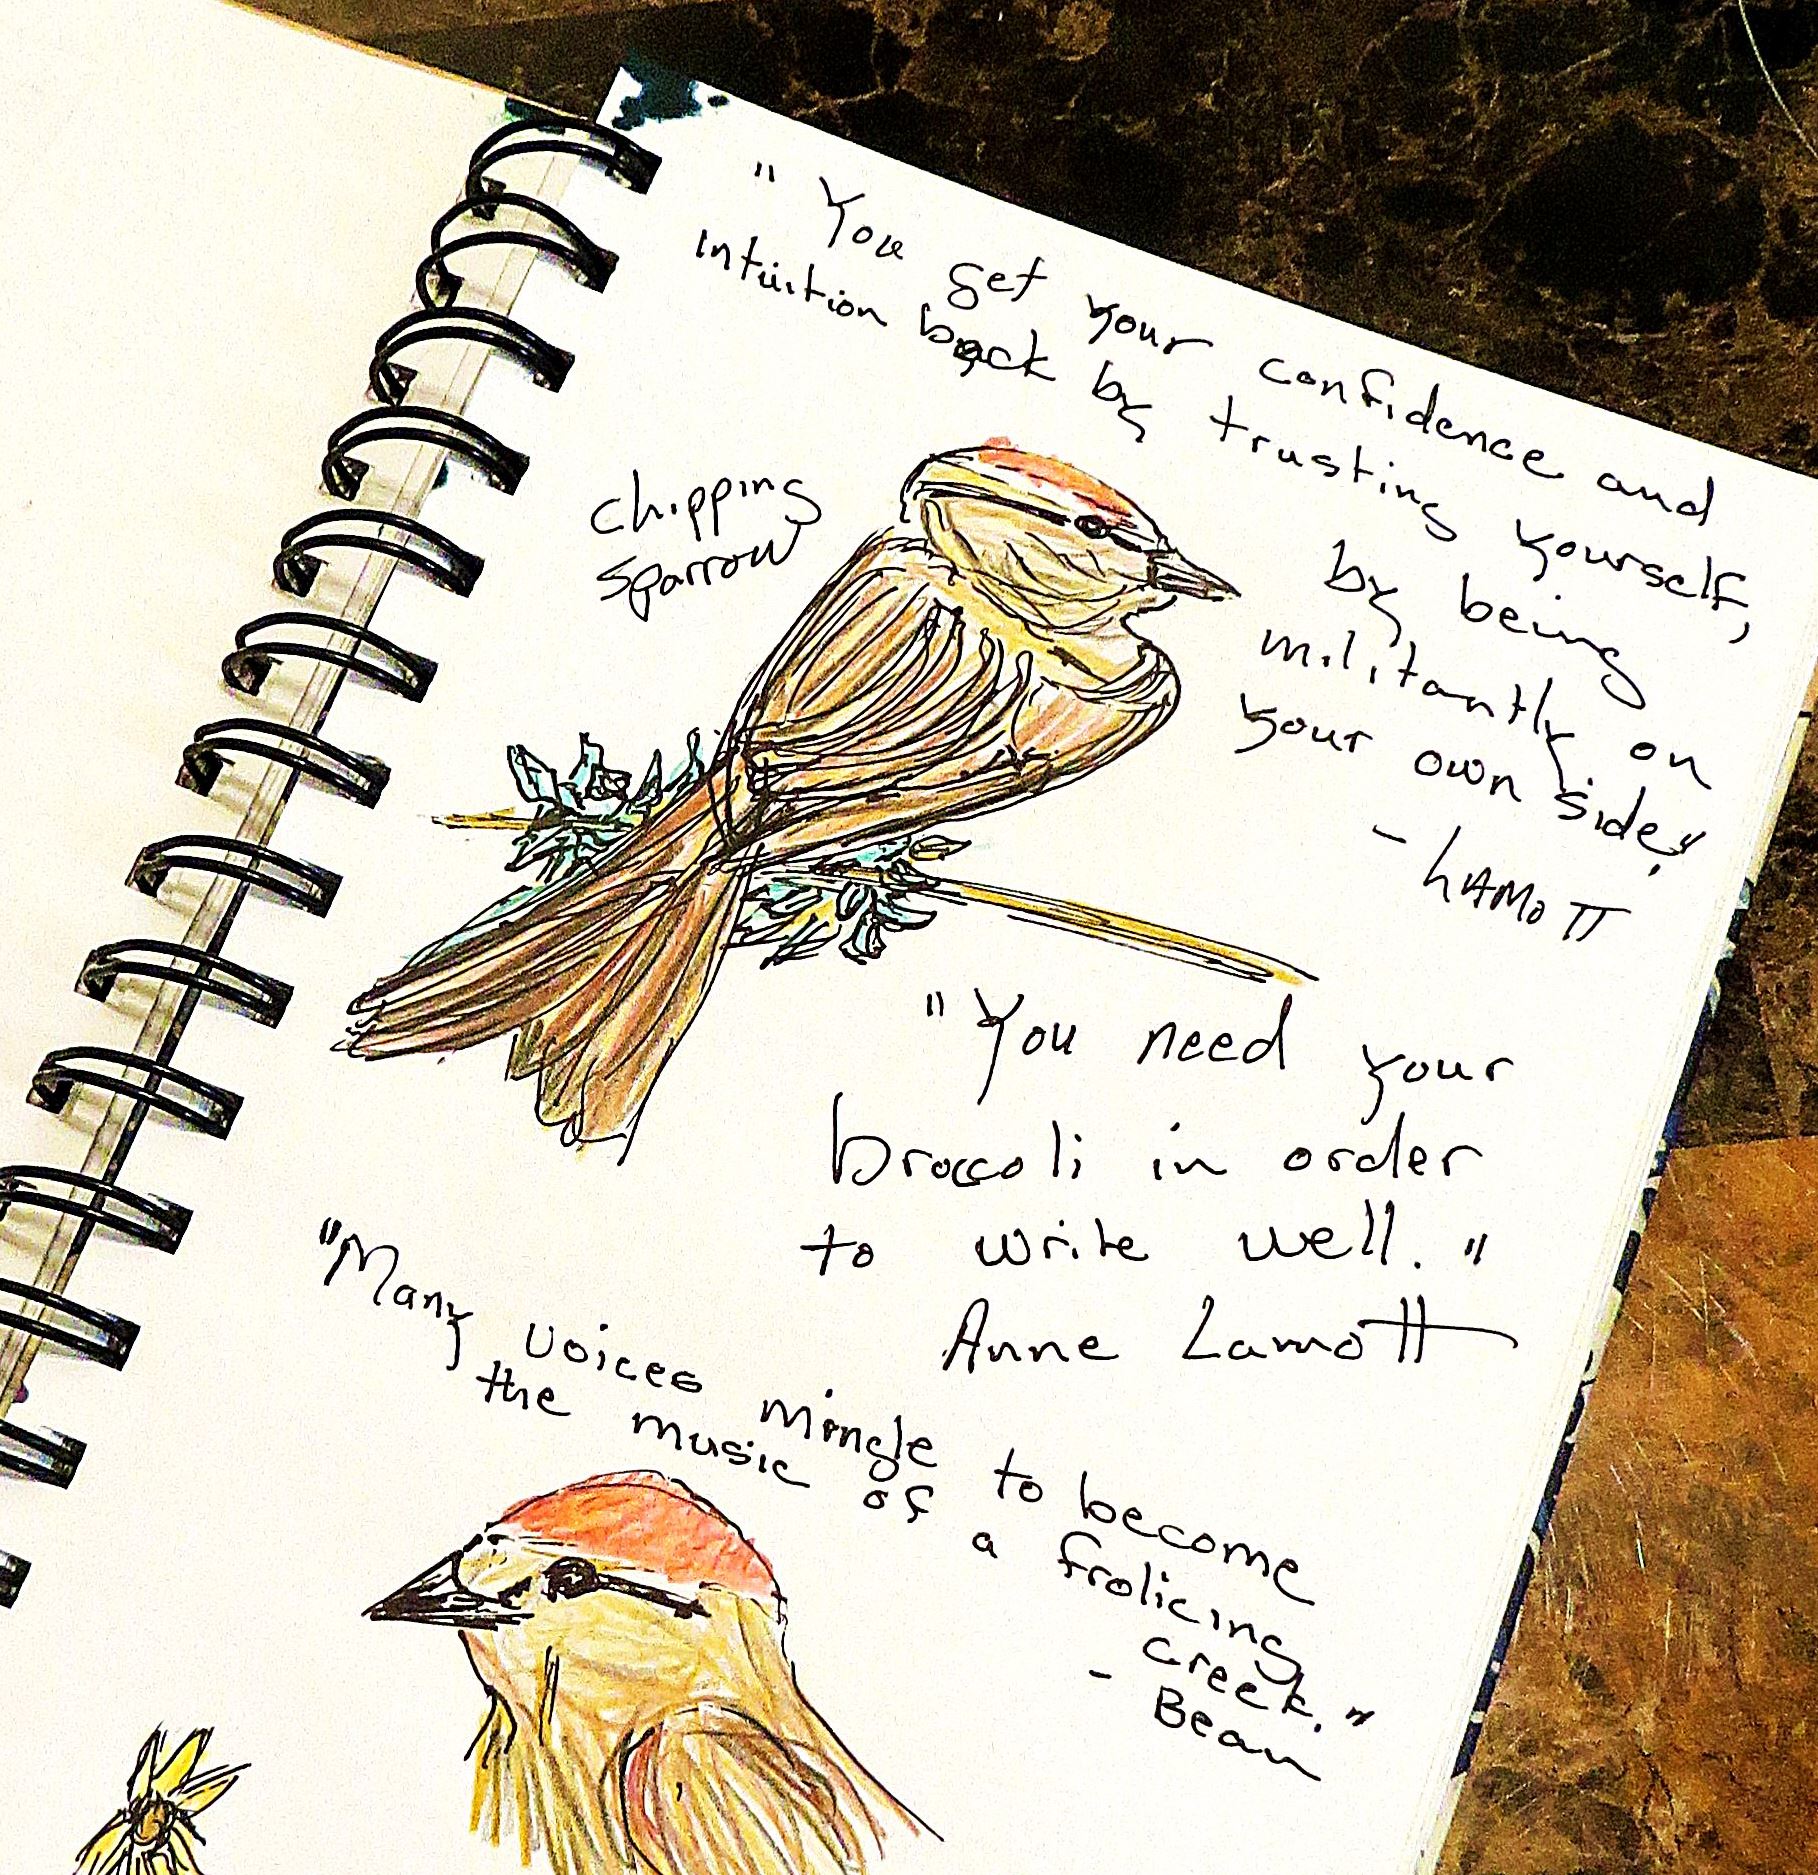 "You get your confidence and
intuition back by trusting yourself,
by being
militantly on
your own side!"
- LAMOTT
chipping
sparrow
"You need your
broccoli in order
to write well."
Anne Lamott
"Many voices mingle to become
the music of a frolicing
creek."
- Bean